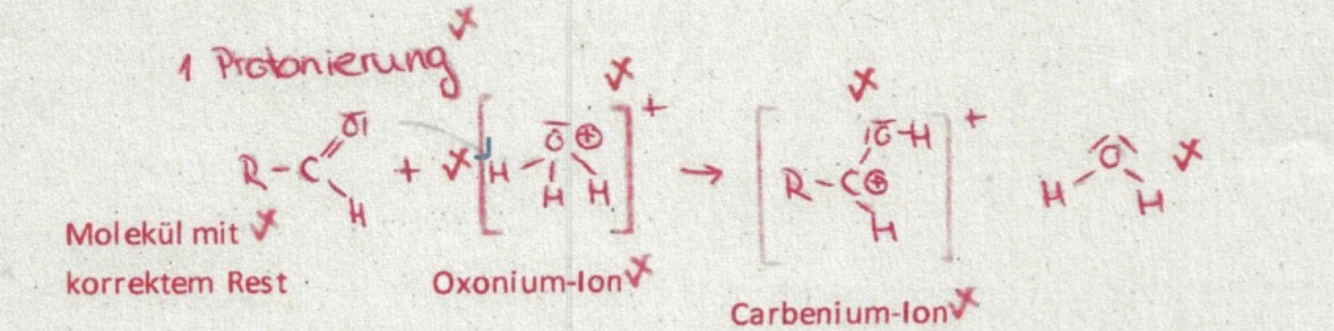 1 Protonierung
R-C=O H + [H-O⊕ H H]+ → [R-C⊕ O-H H]+ H O H
Molekül mit
korrektem Rest
Oxonium-Ion
Carbenium-Ion